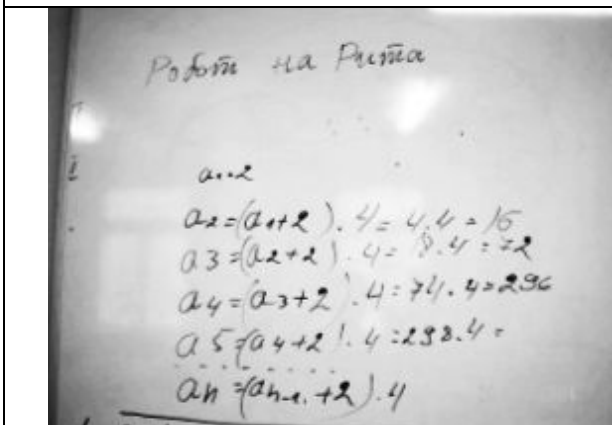 Робот на Рита
a1=2
a2=(a1+2).4=4.4=16
a3=(a2+2).4=18.4=72
a4=(a3+2).4=74.4=296
a5=(a4+2).4=298.4=
an=(an-1+2).4